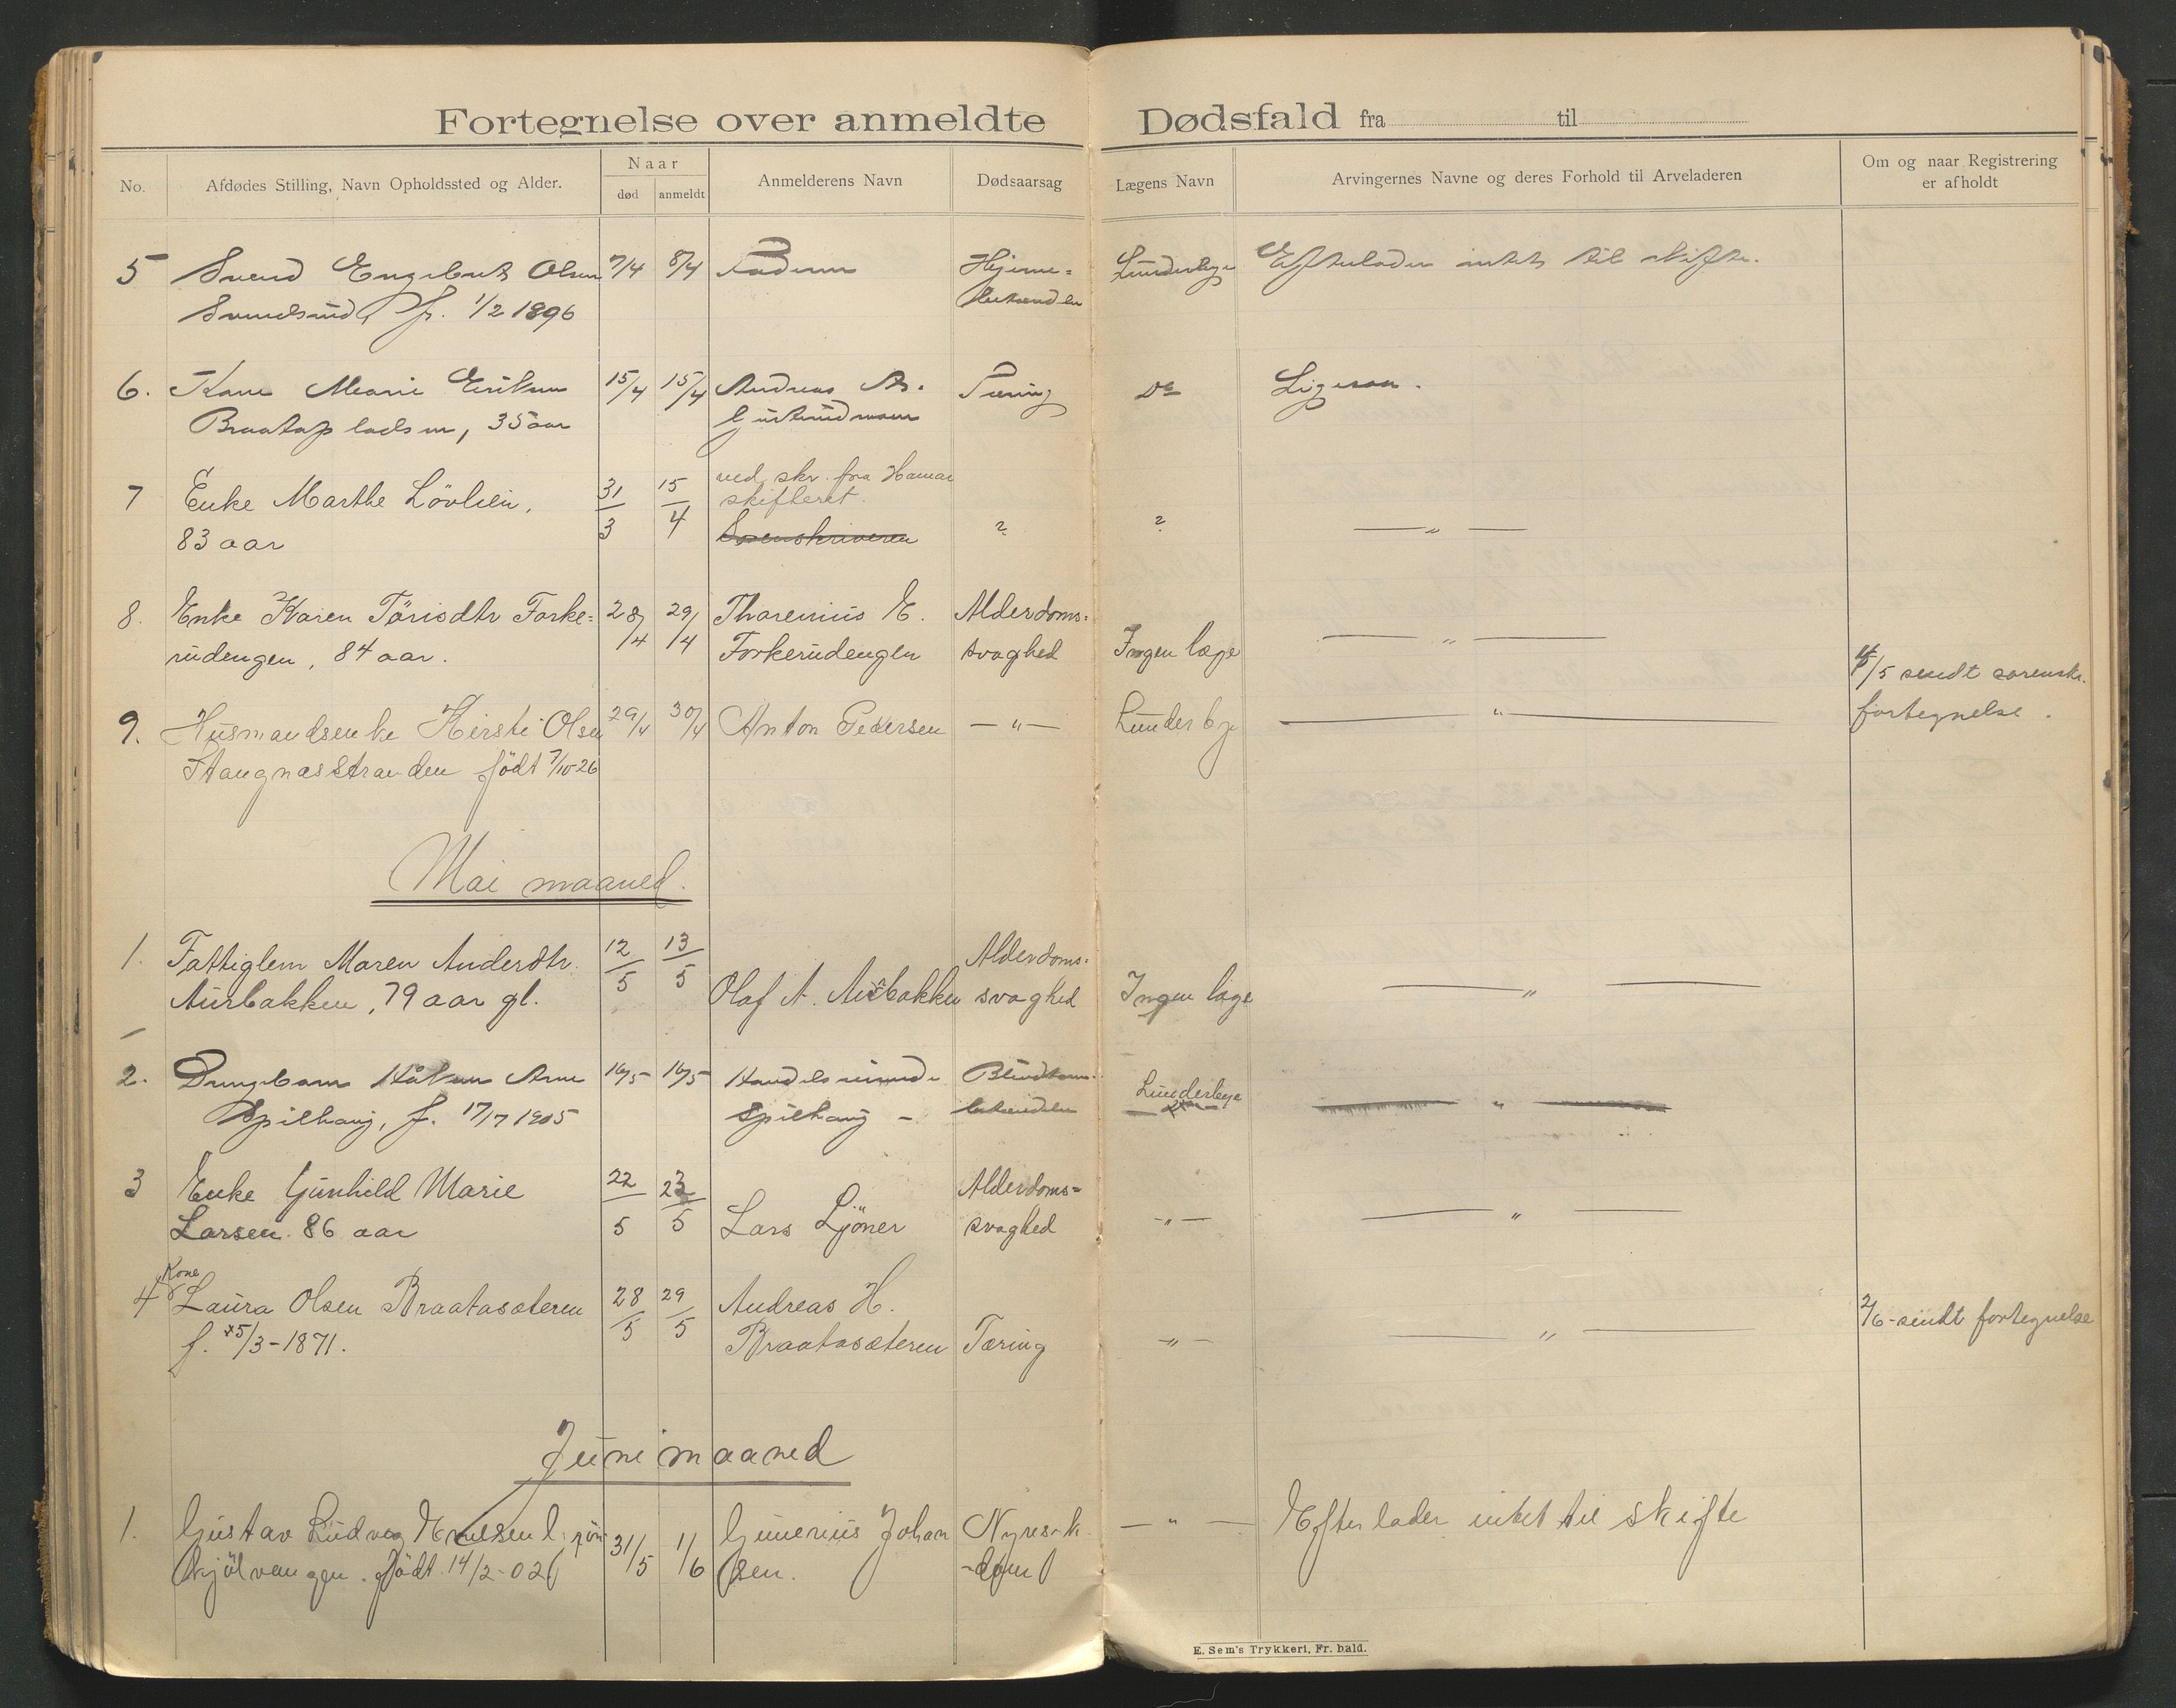 Fortegnelse over anmeldte Dødsfald fra til
No.
Afdødes Stilling, Navn Opholdssted og Alder.
Naar
død anmeldt
Anmelderens Navn
Dødsaarsag
Lægens Navn
Arvingernes Navne og deres Forhold til Arveladeren
Om og naar Registrering
er afholdt
5 Svend Engebret Olsen 7/4 8/4 Faderen Hjerne= Lunderbye Efterlader intet til skifte.
f. 1/2 1896
6. Kone Marie Eriksen 15/4 15/4 Andreas Tæring Do Ligesaa.
Braatapladsen, 35 aar
7 Enke Marthe Lövlien, 31/3 15/4 ved skr. fra Hamar
skifteret.
83 aar Sorenskriveren ? ? — " —
8. Enke Karen Törisdtr Forke= 28/4 29/4 Thorenius E. Alderdoms=
rudengen, 84 aar. Forkerudengen svaghed Ingen læge — " —
4/5 sendt sorenskr.
fortegnelse.
9. Husmandsenke Kirsti Olsen 29/4 30/4 Anton Pedersen — " — Lunderbye — " —
Stangnesstranden födt 7/10-26
Mai maaned.
1. Fattiglem Maren Andersdtr. 12/5 13/5 Alderdoms=
Aurbakken, 79 aar gl. Olaf A. Aurbakken svaghed Ingen læge — " —
2. Drengebarn Håkon Arne 16/5 16/5 Lunderbye — " —
Spilhaug, f. 17/7 1905 Spilhaug -
3 Enke Gunhild Marie 22/5 23/5 Alderdoms=
Larsen. 86 aar Lars Ljöner svaghed - " - — " —
Kone
4 Laura Olsen Braatasæteren 28/5 29/5 Andreas H.
f. 25/3-1871. Braatasæteren Tæring - " - — " — 2/6 - sendt fortegnelse
Juni maaned
1. Gustav Ludvig 31/5 1/6 Gunerius Johan Nyresyk — " — Efterlader intet til skifte
födt 14/2-02 sen. -dom
E. Sem's Trykkeri, Fr. hald.